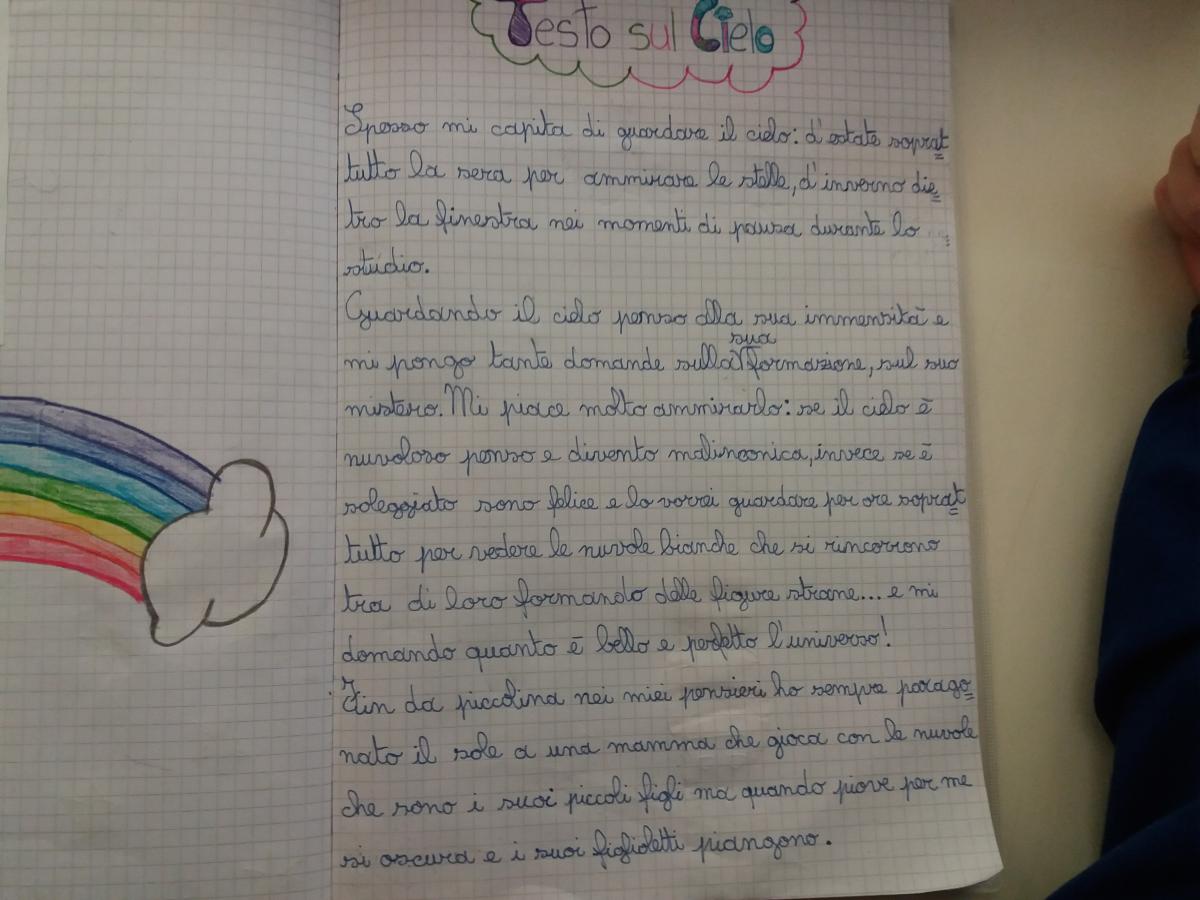 Testo sul Cielo
Spesso mi capita di guardare il cielo: d'estate soprat
tutto la sera per ammirare le stelle, d'inverno die
tro la finestra nei momenti di pausa durante lo
studio.
Guardando il cielo penso alla sua immensità e
mi pongo tante domande sulla sua formazione, sul suo
mistero. Mi piace molto ammirarlo: se il cielo è
nuvoloso penso e divento malinconica, invece se è
soleggiato sono felice e lo vorrei guardare per ore soprat
tutto per vedere le nuvole bianche che si rincorrono
tra di loro formando delle figure strane... e mi
domando quanto è bello e perfetto l'universo!
Fin da piccolina nei miei pensieri ho sempre parago
nato il sole a una mamma che gioca con le nuvole
che sono i suoi piccoli figli ma quando piove per me
si oscura e i suoi figlioletti piangono.